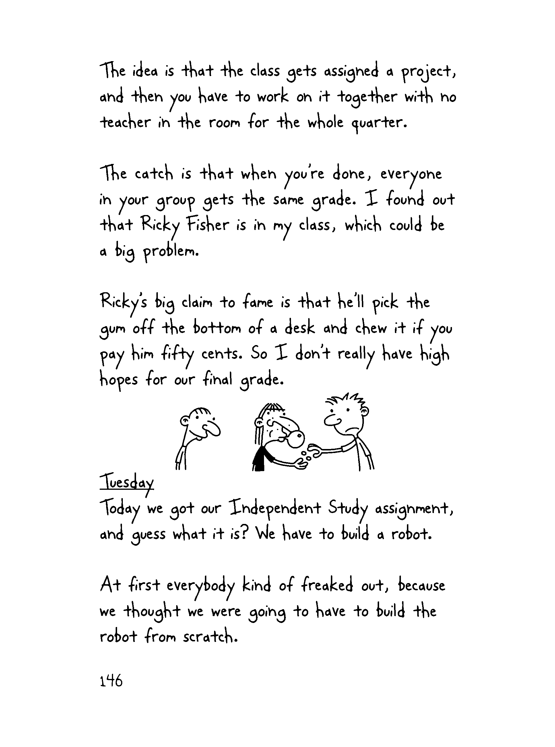 The idea is that the class gets assigned a project,
and then you have to work on it together with no
teacher in the room for the whole quarter.
The catch is that when you're done, everyone
in your group gets the same grade. I found out
that Ricky Fisher is in my class, which could be
a big problem.
Ricky's big claim to fame is that he'll pick the
gum off the bottom of a desk and chew it if you
pay him fifty cents. So I don't really have high
hopes for our final grade.
Tuesday
Today we got our Independent Study assignment,
and guess what it is? We have to build a robot.
At first everybody kind of freaked out, because
we thought we were going to have to build the
robot from scratch.
146